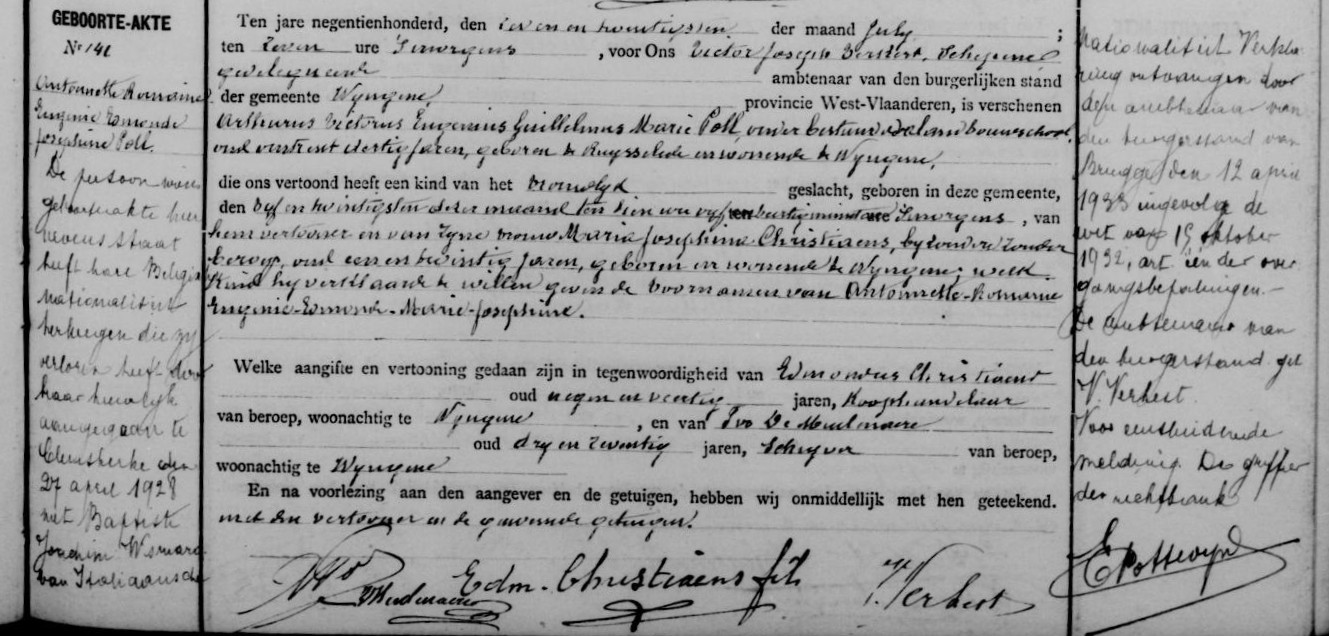 GEBOORTE-AKTE
N° 141
Antonnette Romanie
Eugenie Esmonde
Josephine Poll.
De persoon wiens
geboorteakte hier
nevens staat
heeft hare Belgis
nationaliteit
herkregen die zy
verloren heeft door
haar huwelijk
aangegaan te
Clemskerke den
27 april 1928
met Baptiste
Joachim
van Italiaansche
Ten jare negentienhonderd, den zeven en twintigsten der maand July ;
ten zeven ure 's morgens , voor Ons Victor Joseph Verkest, Schepene
gedelegueerde ambtenaar van den burgerlijken stand
der gemeente Wyngene, provincie West-Vlaanderen, is verschenen
Arthurus Victorus Eugenius Guillelmus Marie Poll, onder bestuur der landbouwschool,
oud dertig jaren, geboren te Ruysselede en wonende te Wyngene,
die ons vertoond heeft een kind van het vrouwelyk geslacht, geboren in deze gemeente,
den vyf en twintigsten dezer maand ten tien ure vyf en veertig minuten 's morgens , van
hem vertooner en van zyne vrouw Maria Josephina Christiaens, byzondere zonder
beroep, oud een en twintig jaren, geboren en wonende te Wyngene; welk
kind hy verklaarde te willen geven de voornamen van Antonnette-Romanie
Eugenie-Esmonde-Marie-Josephine.
Welke aangifte en vertooning gedaan zijn in tegenwoordigheid van Edmondus Christiaens
oud negen en veertig jaren, Koophandelaar
van beroep, woonachtig te Wyngene , en van Ivo De Meulenaere
oud dry en zeventig jaren, Schryver van beroep,
woonachtig te Wyngene
En na voorlezing aan den aangever en de getuigen, hebben wij onmiddellijk met hen geteekend.
met den vertooner en de genoemde getuigen.
Edm. Christiaens fils
V. Verkest
Nationaliteit Verkla-
ring ontvangen door
den ambtenaar van
den burgerstand van
Brugge den 12 april
1933 ingevolge de
wet van 15 oktober
1932, art. één der over
gangsbepalingen.-
De ambtenaar van
den burgerstand get
V. Verkest.
Voor eensluidende
melding. De griffier
der rechtbank